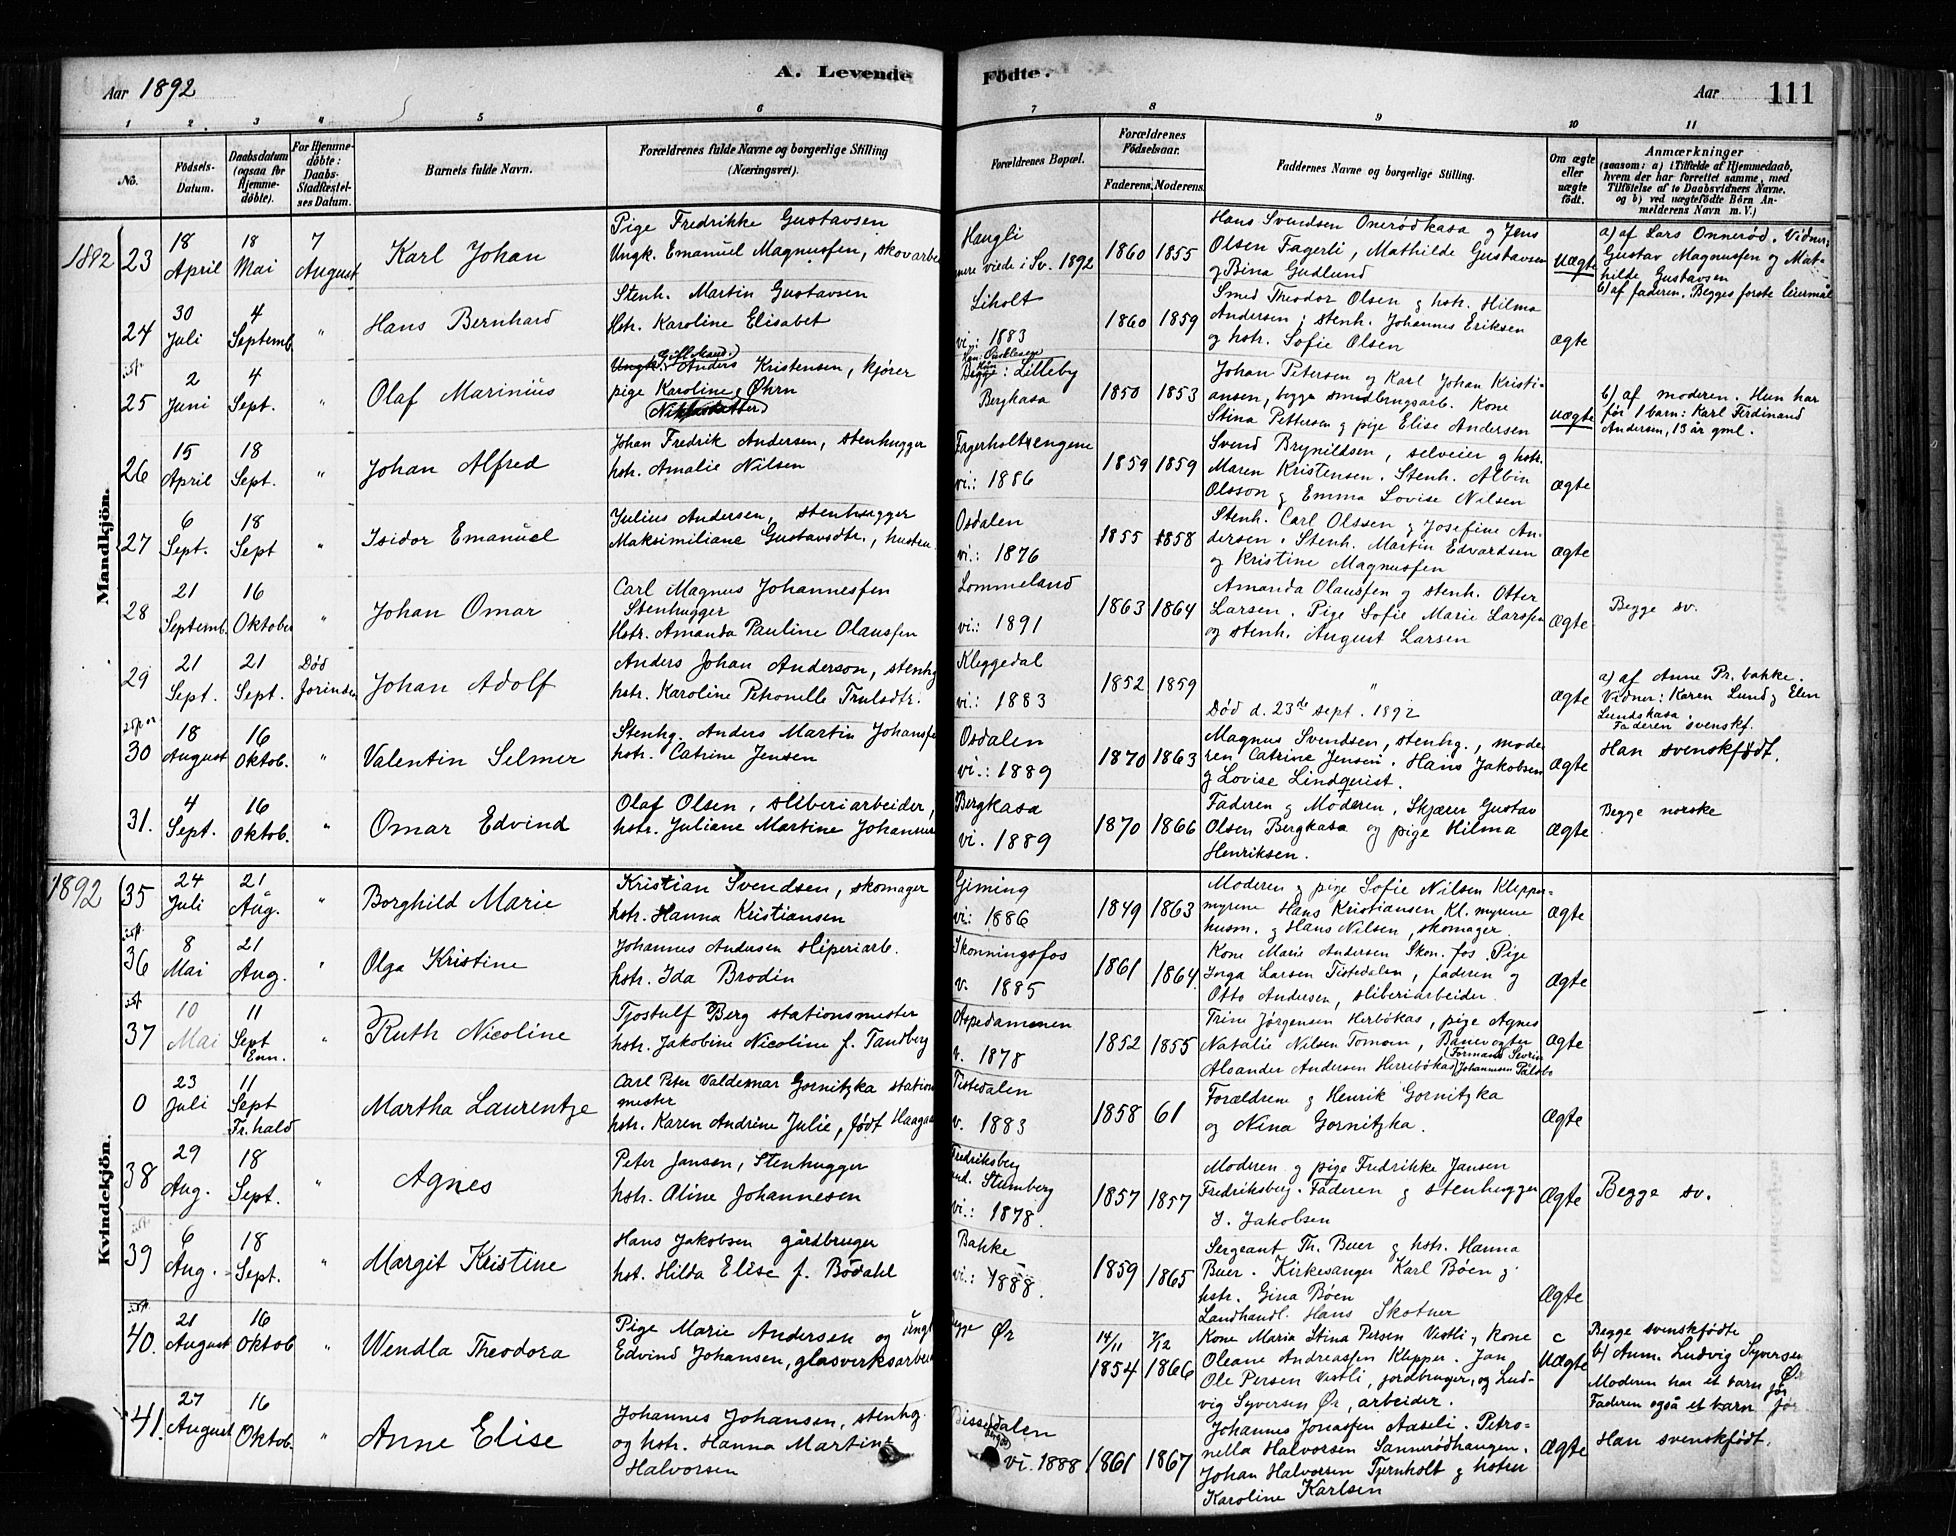 A. Levende Födte.
Aar 1892
Aar 111
1 2. 3 " 5 6 7 8 9 10 11
No.
Födsels-Datum.
Daabsdatum (ogsaa for Hjemmedöbte).
For Hjemmedöbte: Daabs-Stadfæstelses Datum.
Barnets fulde Navn.
Forældrenes fulde Navne og borgerlige Stilling (Næringsvei).
Forældrenes Bopæl.
Forældrenes Födselsaar.
Faderens. Moderens.
Faddernes Navne og borgerlige Stilling.
Om ægte eller uægte födt.
Anmærkninger
(saasom: a) i Tilfælde af Hjemmedaab, hvem der har forrettet samme, med Tilföielse af to Daabsvidners Navne. og b) ved uægtefödte Börn Anmelderens Navn m. V.)
Mandkjön.
1892 23 18 April 18 Mai 7 August Karl Johan
Pige Fredrikke Gustavsen
Ungk. Emanuel Magnussen, skovarbei
Haugli
viede i Sv. 1892
1860 1855
Hans Svendsen Onerödkasa og Jens
Olsen Fagerli, Mathilde Gustavsen
og Bina Gudlund
Uægte
a) af Lars Onneröd. Vidner:
Gustav Magnussen og Mathilde Gustavsen
b) af faderen. Begges forste leiermål
24 30 Juli 4 Septemb. " Hans Bernhard
Stenh. Martin Gustavsen
Hstr. Karoline Elisabet
Liholt
vi.: 1883
1860 1859
Smed Theodor Olsen g hstr. Hilma
Andersen; stenh. Johannes Eriksen
g hstr. Sofie Olsen
Ægte
25 2 Juni 4 Sept. " Olaf Marinius
Ungk. Gift Mand.) Anders Kristensen, kjörer
pige Karoline Öhrn
Begge: Lilleby
Bergkasa
1850 1853
Johan Petersen og Karl Johan Kristiansen, begge smedbrugsarb. Kone
Stina Pettersen g pige Elise Andersen
Uægte
b) af moderen. Hun har
för 1 barn: Karl Ferdinand
Andersen, 13 år gml.
26 15 April 18 Sept. " Johan Alfred
Johan Fredrik Andersen, stenhugger
hstr. Amalie Nilsen
Fagerholtrengene
vi.: 1886
1859 1859
Svend Brynildsen, selveier g hstr.
Maren Kristensen. Stenh. Albin
Olsson g Emma Lovise Nilsen
Ægte
27 6 Sept. 18 Sept " Isidor Emanuel
Julius Andersen, stenhugger
Maksimiliane Gustavsdtr., hustru
Osdalen
vi.: 1876
1855 1858
Stenh. Carl Olssen g Josefine Andersen. Stenh. Martin Edvardsen
og Kristine Magnussen
Ægte
28 21 Septemb. 16 Oktober " Johan Omar
Carl Magnus Johannessen
Stenhugger
Hstr. Amanda Pauline Olaussen
Lommeland
vi.: 1891
1863 1864
Amanda Olaussen og stenh. Otter
Larsen. Pige Sofie Marie Larssen
og stenh. August Larsen
Ægte
Begge sv.
29 21 Sept. 21 Sept. Död forinden Johan Adolf
Anders Johan Anderson, stenhg
hstr. Karoline Petronelle Trulsdtr.
Kleggedal
vi.: 1883
1852 1859
"
Död d. 23de Sept. 1892
Ægte
a) af Anne Pr. bakke.
Vidner: Karen Lund g Elen
Lundskasa.
Faderen svenskf.
30 18 August 16 Oktob. " Valentin Selmer
Stenhg. Anders Martin Johansen
hstr. Catrine Jensen
Osdalen
vi.: 1889
1870 1863
Magnus Svendsen, stenhg., moderen Catrine Jensen. Hans Jakobsen
g Lovise Lindqvist.
Ægte
Han svenskfödt.
31. 4 Sept. 16 Oktob. " Omar Edvind
Olaf Olsen, sliberiarbeider,
hstr. Juliane Martine Johansen
Bergkasa
vi. 1889
1870 1866
Faderen g Moderen, Skjærer Gustav
Olsen Bergkasa og pige Hilma
Henriksen.
Ægte
Begge norske
Kvindekjön.
1892 35 24 Juli 21 Aug. " Borghild Marie
Kristian Svendsen, skomager
hstr. Hanna Kristiansen
Giming
vi: 1886
1849 1863
Moderen g pige Sofie Nilsen Kleppermyrene Hans Kristiansen, Kl. myrene
husm. g Hans Nilsen, skomager
Ægte
36 8 Mai 21 Aug. " Olga Kristine
Johannes Andersen sliperiarb.
hstr. Ida Brodin
Skonningsfos
v. 1885
1861 1864.
Kone Marie Andersen Skon. fos. Pige
Inga Larsen Tistedalen, faderen og
Otto Andersen, sliberiarbeider.
Ægte
37 10 Mai 11 Sept Enn. " Ruth Nicoline
Tjostulf Berg stationsmester
hstr. Jakobine Nicoline f. Tandberg
Aspedammen
v. 1878
1852 1855
Trine Jörgensen Herbökas, pige Agnes
Natalie Nilsen Tomom, Banevogter
Alsander Andersen Herrebökas (Formand Severin Johannesen
Ægte
0 23 Juli 11 Sept Fr.hald Martha Laurentze
Carl Peter Valdemar Gornitzka stationmester
hstr. Karen Andrine Julie, födt Haagaa
Tistedalen
v. 1883
1858 61
Forældrene g Henrik Gornitzka
og Nina Gornitzka.
Ægte
38 29 Aug. 18 Sept. " Agnes
Peter Jansen, Stenhugger
hstr. Aline Johannesen
Fredriksberg
und. Stumberg
vi.: 1878.
1857 1857
Moderen g pige Fredrikke Jansen
Fredriksberg. Faderen g stenhugger
J. Jakobsen
Ægte
Begge sv.
39 6 Aug. 18 Sept. " Margit Kristine
Hans Jakobsen gårdbruger
hst. Hilda Elise f. Bödahl
Bakke
vi.: 1888.
1859 1865
Sergeant Th. Buer g hstr. Hanna
Buer. Kirkesanger Karl Böen g
hstr. Gina Böen
Landhandl. Hans Skotner
Ægte
40. 21 August 16 Oktob " Wendla Theodora
Pige Marie Andersen og Ungk
Edvind Johansen, glasverksarbei
Begge Ør
14/11 1854 7/12 1866
Kone Maria Stina Persen Vestli g kone
Oleane Andreassen Klepper. Jan
Ole Persen Vestli, jordbruger, og Ludvig Syversen Ør, arbeider.
c
Uægte
Begge svenskfödte
b) Anm. Ludvig Syversen Ør
Moderen har et barn för
Faderen også et barn för
41. 27 August 16 Oktob. " Anne Elise
Johannes Johansen, stenhg.
og hstr. Hanna Martine
Halvorsen
Bissedalen
vi. 1888
1861 1867
Johannes Jonassen Aaseli. Petronella Halvorsen Sannerödhaugen.
Johan Halvorsen Tjernholt g hstru
Karoline Karlsen
Ægte
Han svenskfödt.